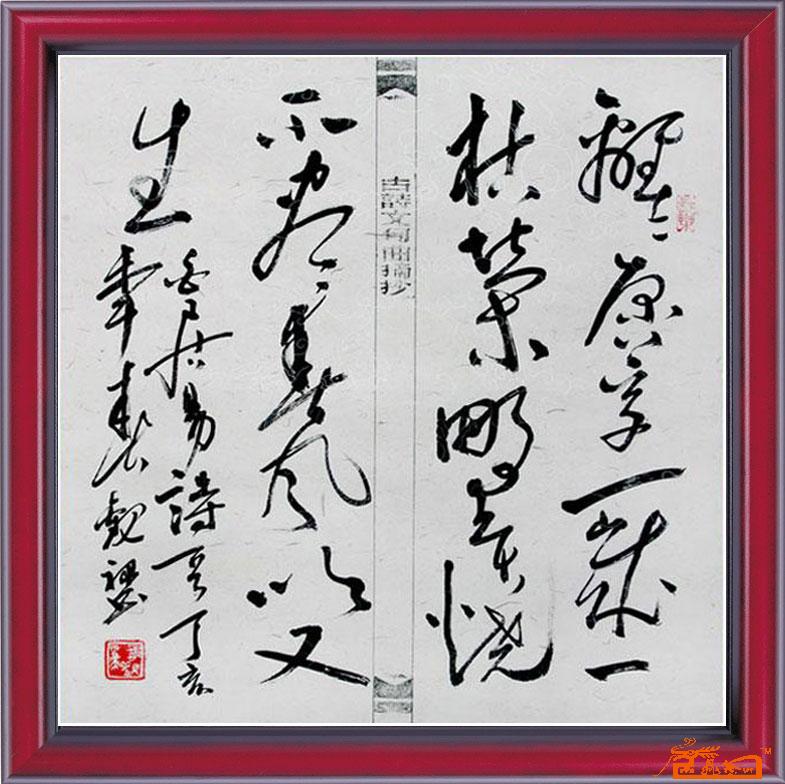 離離原上草一歲一
枯榮野火燒
古詩文句曲摘抄
不盡春風吹又
生
白居易詩丁亥
年春